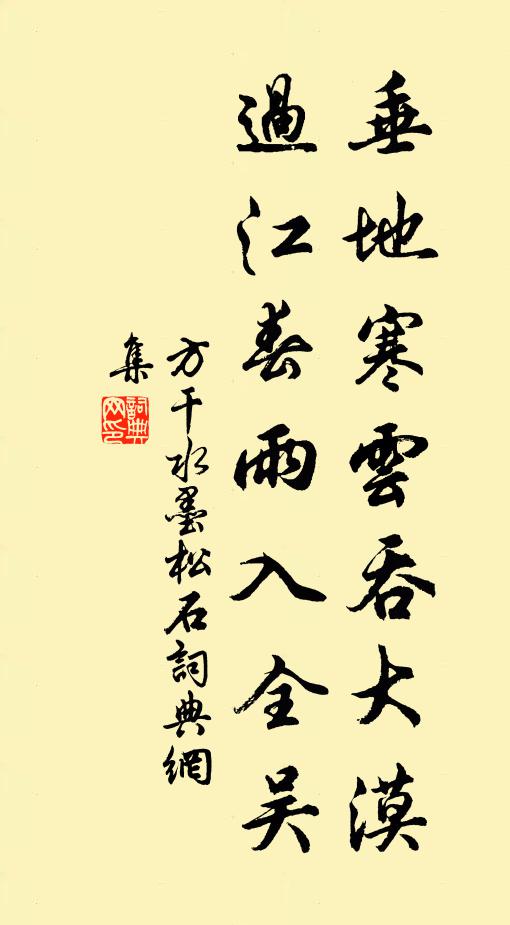 垂地寒雲吞大漠
過江春雨入全吴
方干水墨松石詞典網
集
詞典網印